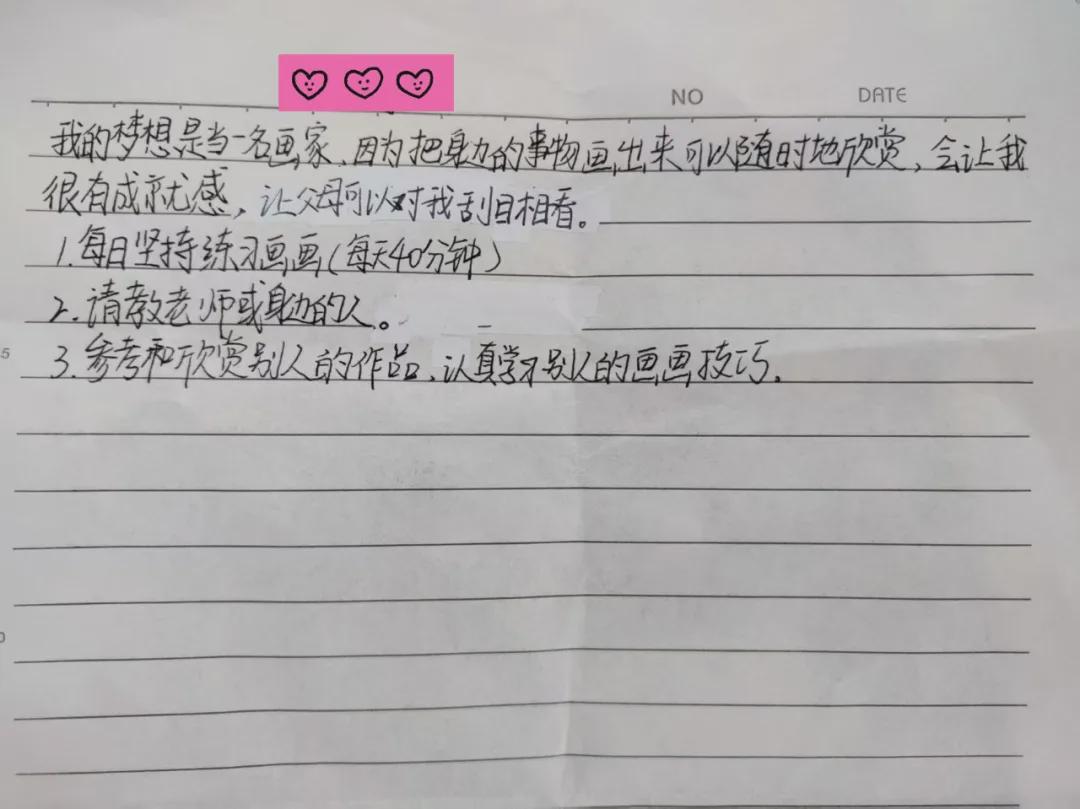 NO DATE
我的梦想是当一名画家，因为把身边的事物画出来可以随时地欣赏，会让我
很有成就感，让父母可以对我刮目相看。
1.每日坚持练习画画(每天40分钟)
2.请教老师或身边的人。
5
3.参考和欣赏别人的作品，认真学习别人的画画技巧.